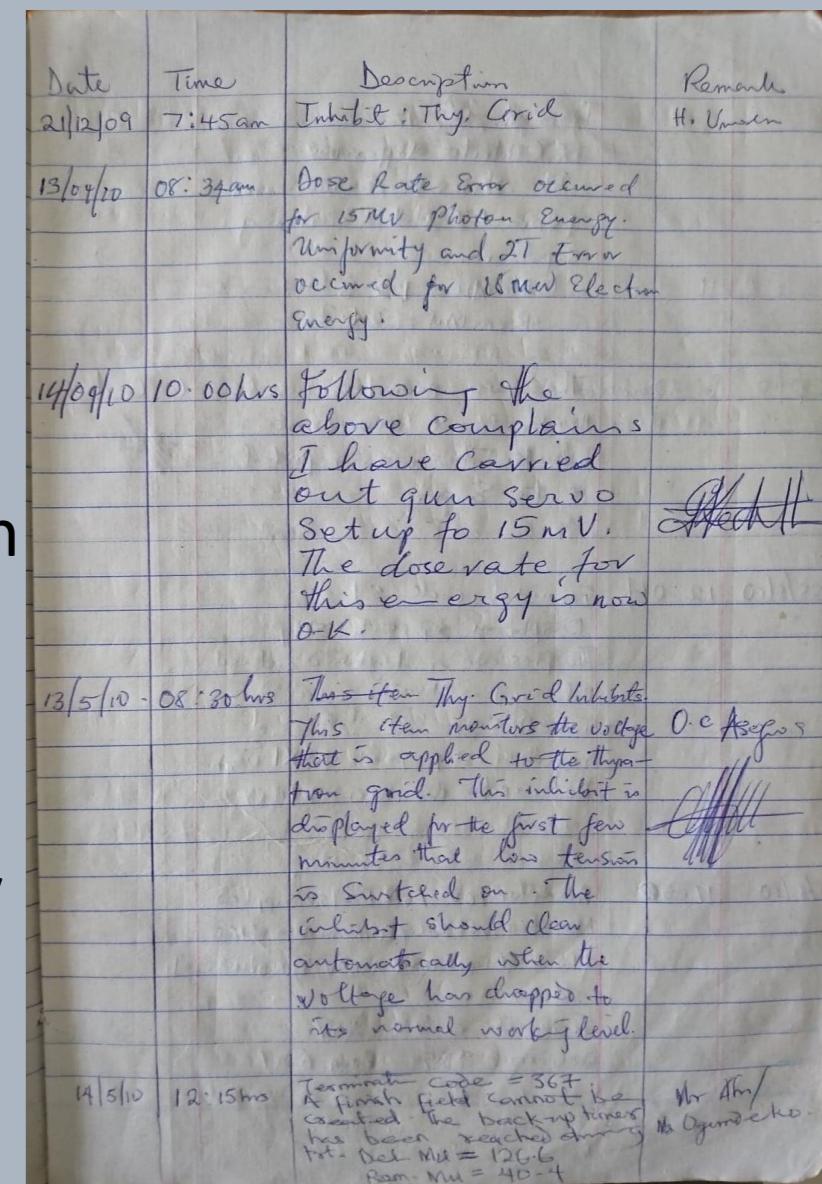 Date Time Description Remark
21/12/09 7:45am Inhibit : Thy. Grid H.
13/04/10 08:34am Dose Rate Error occured
for 15MV Photon Energy.
Uniformity and 2T Error
occured, for 18 Electron
Energy.
14/04/10 10.00hrs Following the
above complains
I have carried
out gun servo
Set up fo 15mV.
The dose rate for
this energy is now
O.K.
13/5/10 - 08:30 hrs This item Thy. Grid Inhibits.
This item monitors the voltage O.C
that is applied to the Thyra-
tron grid. This inhibit is
displayed for the first few
minutes that low tension
is switched on. The
inhibit should clear
automatically when the
voltage has dropped to
its normal working level.
14/5/10 12:15hrs Terminate Code = 367
A finish field cannot be Mr
created. The back-up timer
has been reached during
trt. Del. MU = 126.6
Rem. MU = 40.4
n